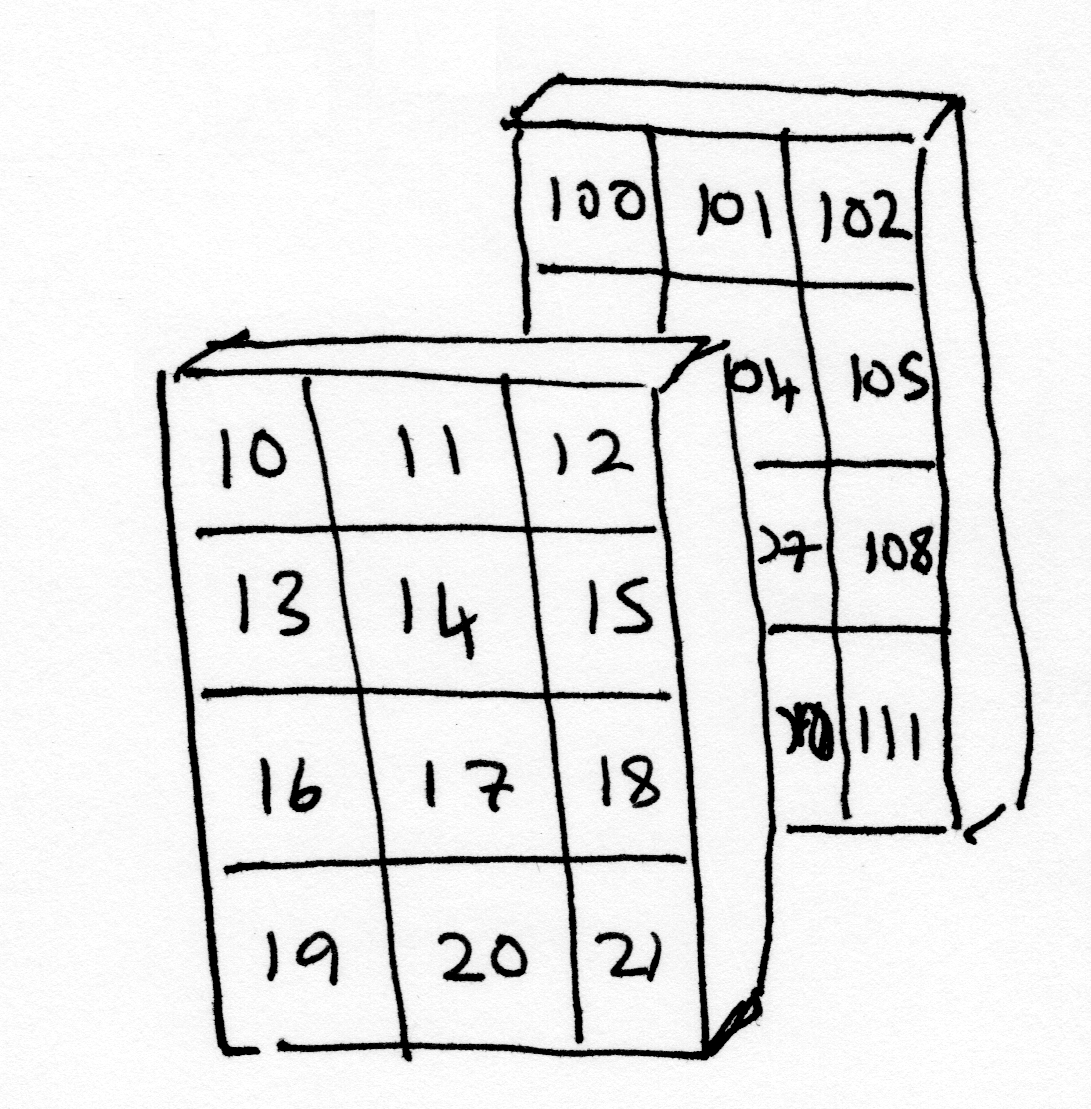 100 101 102
04 105
7 108
111
10 11 12
13 14 15
16 17 18
19 20 21